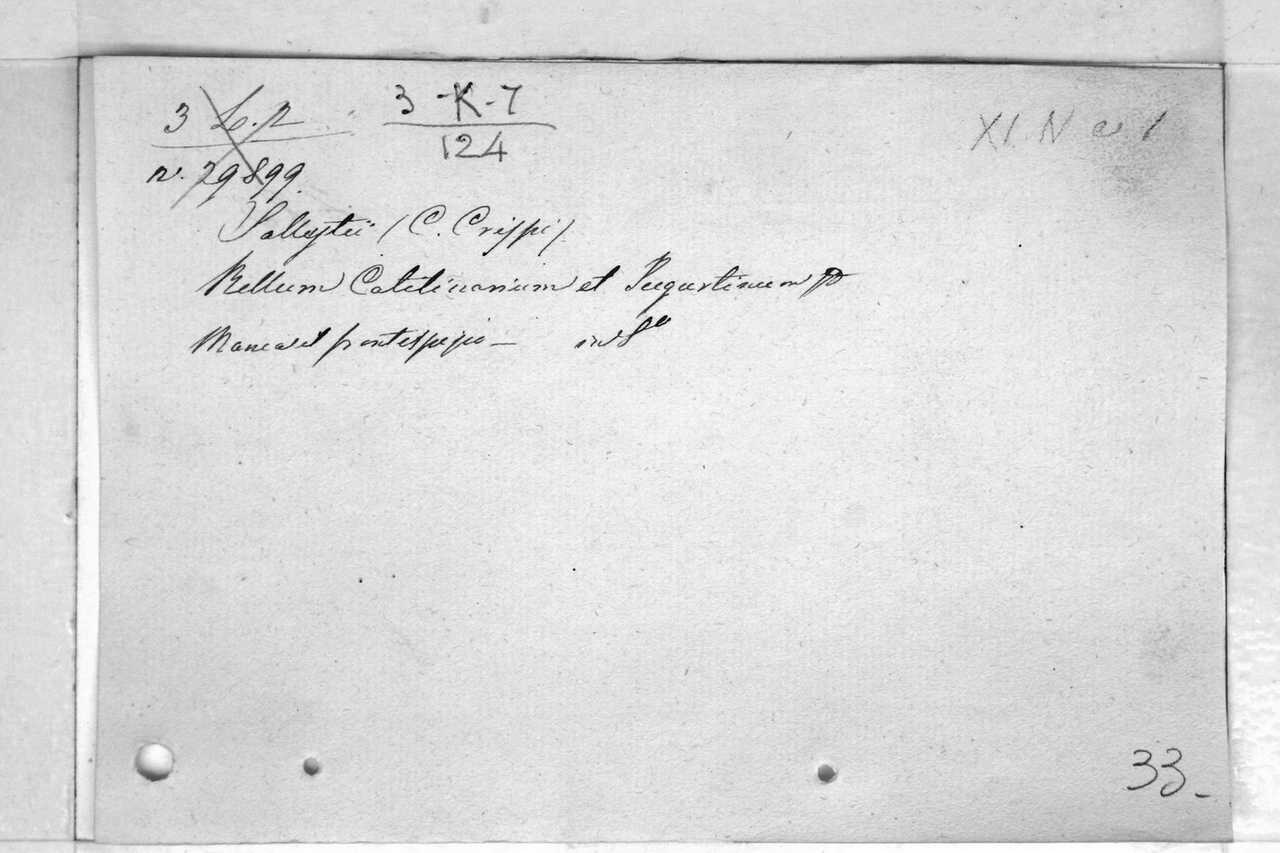 3 L. 2
3-K-7
124
XI. N a 1
n. 29899.
Sallustii (C. Crispi)
Bellum Catilinarium et Jugurtinum
Manca il frontespizio — in 8º
33-